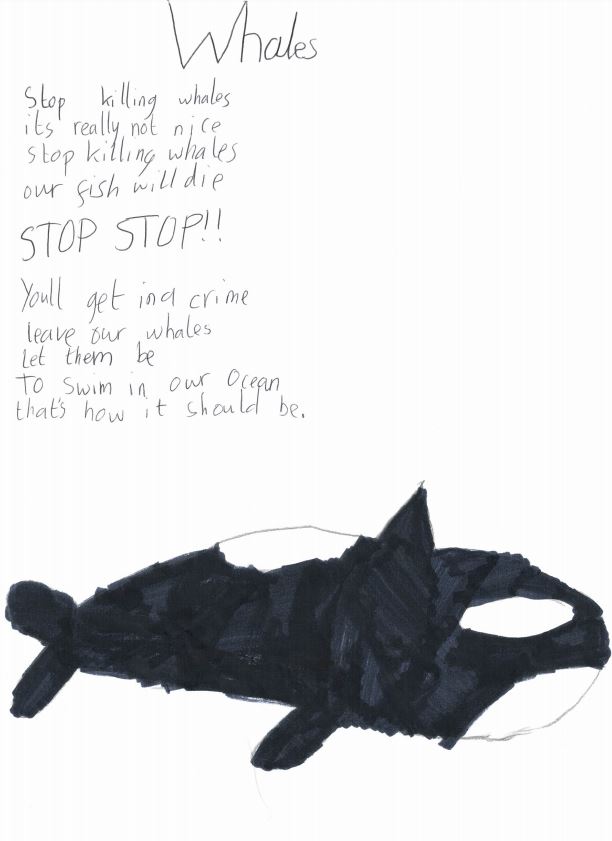 Whales
Stop killing whales
its really not nice
stop killing whales
our fish will die
STOP STOP!!
Youll get in a crime
leave our whales
Let them be
To swim in our Ocean
that's how it should be.